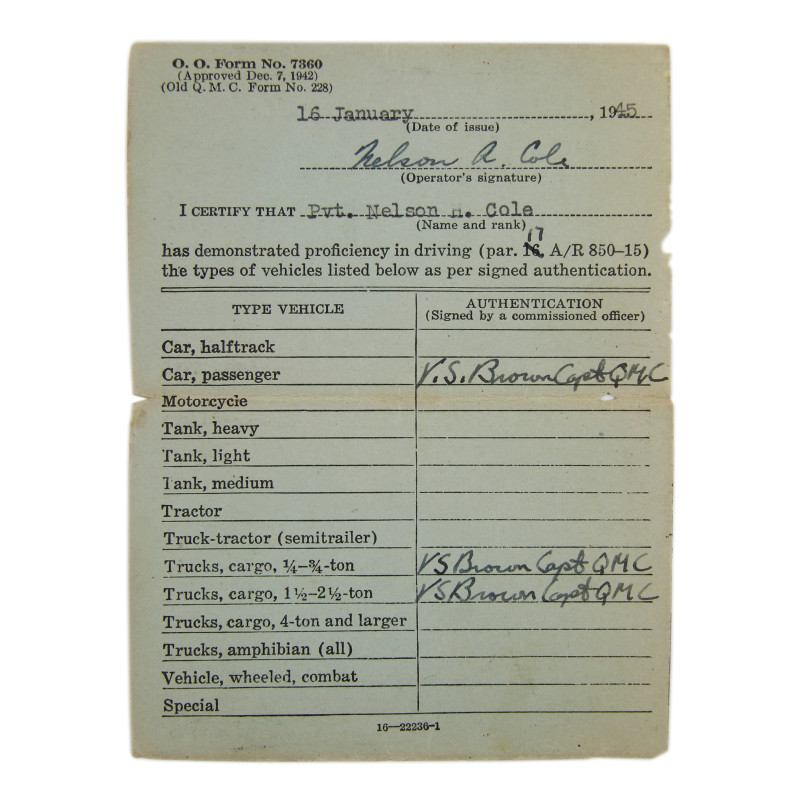 O. O. Form No. 7360
(Approved Dec. 7, 1942)
(Old Q. M. C. Form No. 228)
16 January, 1945
(Date of issue)
Nelson A. Cole
(Operator's signature)
I CERTIFY THAT Pvt. Nelson A. Cole
(Name and rank)
17
has demonstrated proficiency in driving (par. 16, A/R 850–15)
the types of vehicles listed below as per signed authentication.
TYPE VEHICLE AUTHENTICATION
(Signed by a commissioned officer)
Car, halftrack
Car, passenger V. S. Brown Capt QMC
Motorcycle
Tank, heavy
Tank, light
Tank, medium
Tractor
Truck-tractor (semitrailer)
Trucks, cargo, ¼–¾-ton VS Brown Capt QMC
Trucks, cargo, 1½–2½-ton VS Brown Capt QMC
Trucks, cargo, 4-ton and larger
Trucks, amphibian (all)
Vehicle, wheeled, combat
Special
16—22236-1